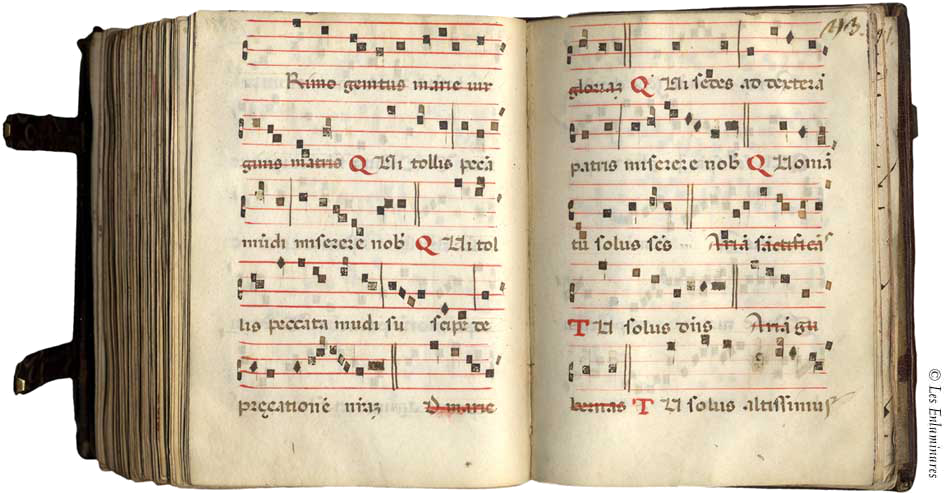 Rimo genitus marie vir
ginis matris Qui tollis pecā
mūdi miserere nob̄ Qui tol
lis peccata mudi su scipe de
precationē nr̄aꝫ Ad marie
gloriaꝫ Qui sedes ad dexterā
patris miserere nob̄ Qͦuoniā
tu solus sc̄s Mariā sāctificās
Tu solus dn̄s Mariā gu
bernas Tu solus altissimus
© Les Enluminures